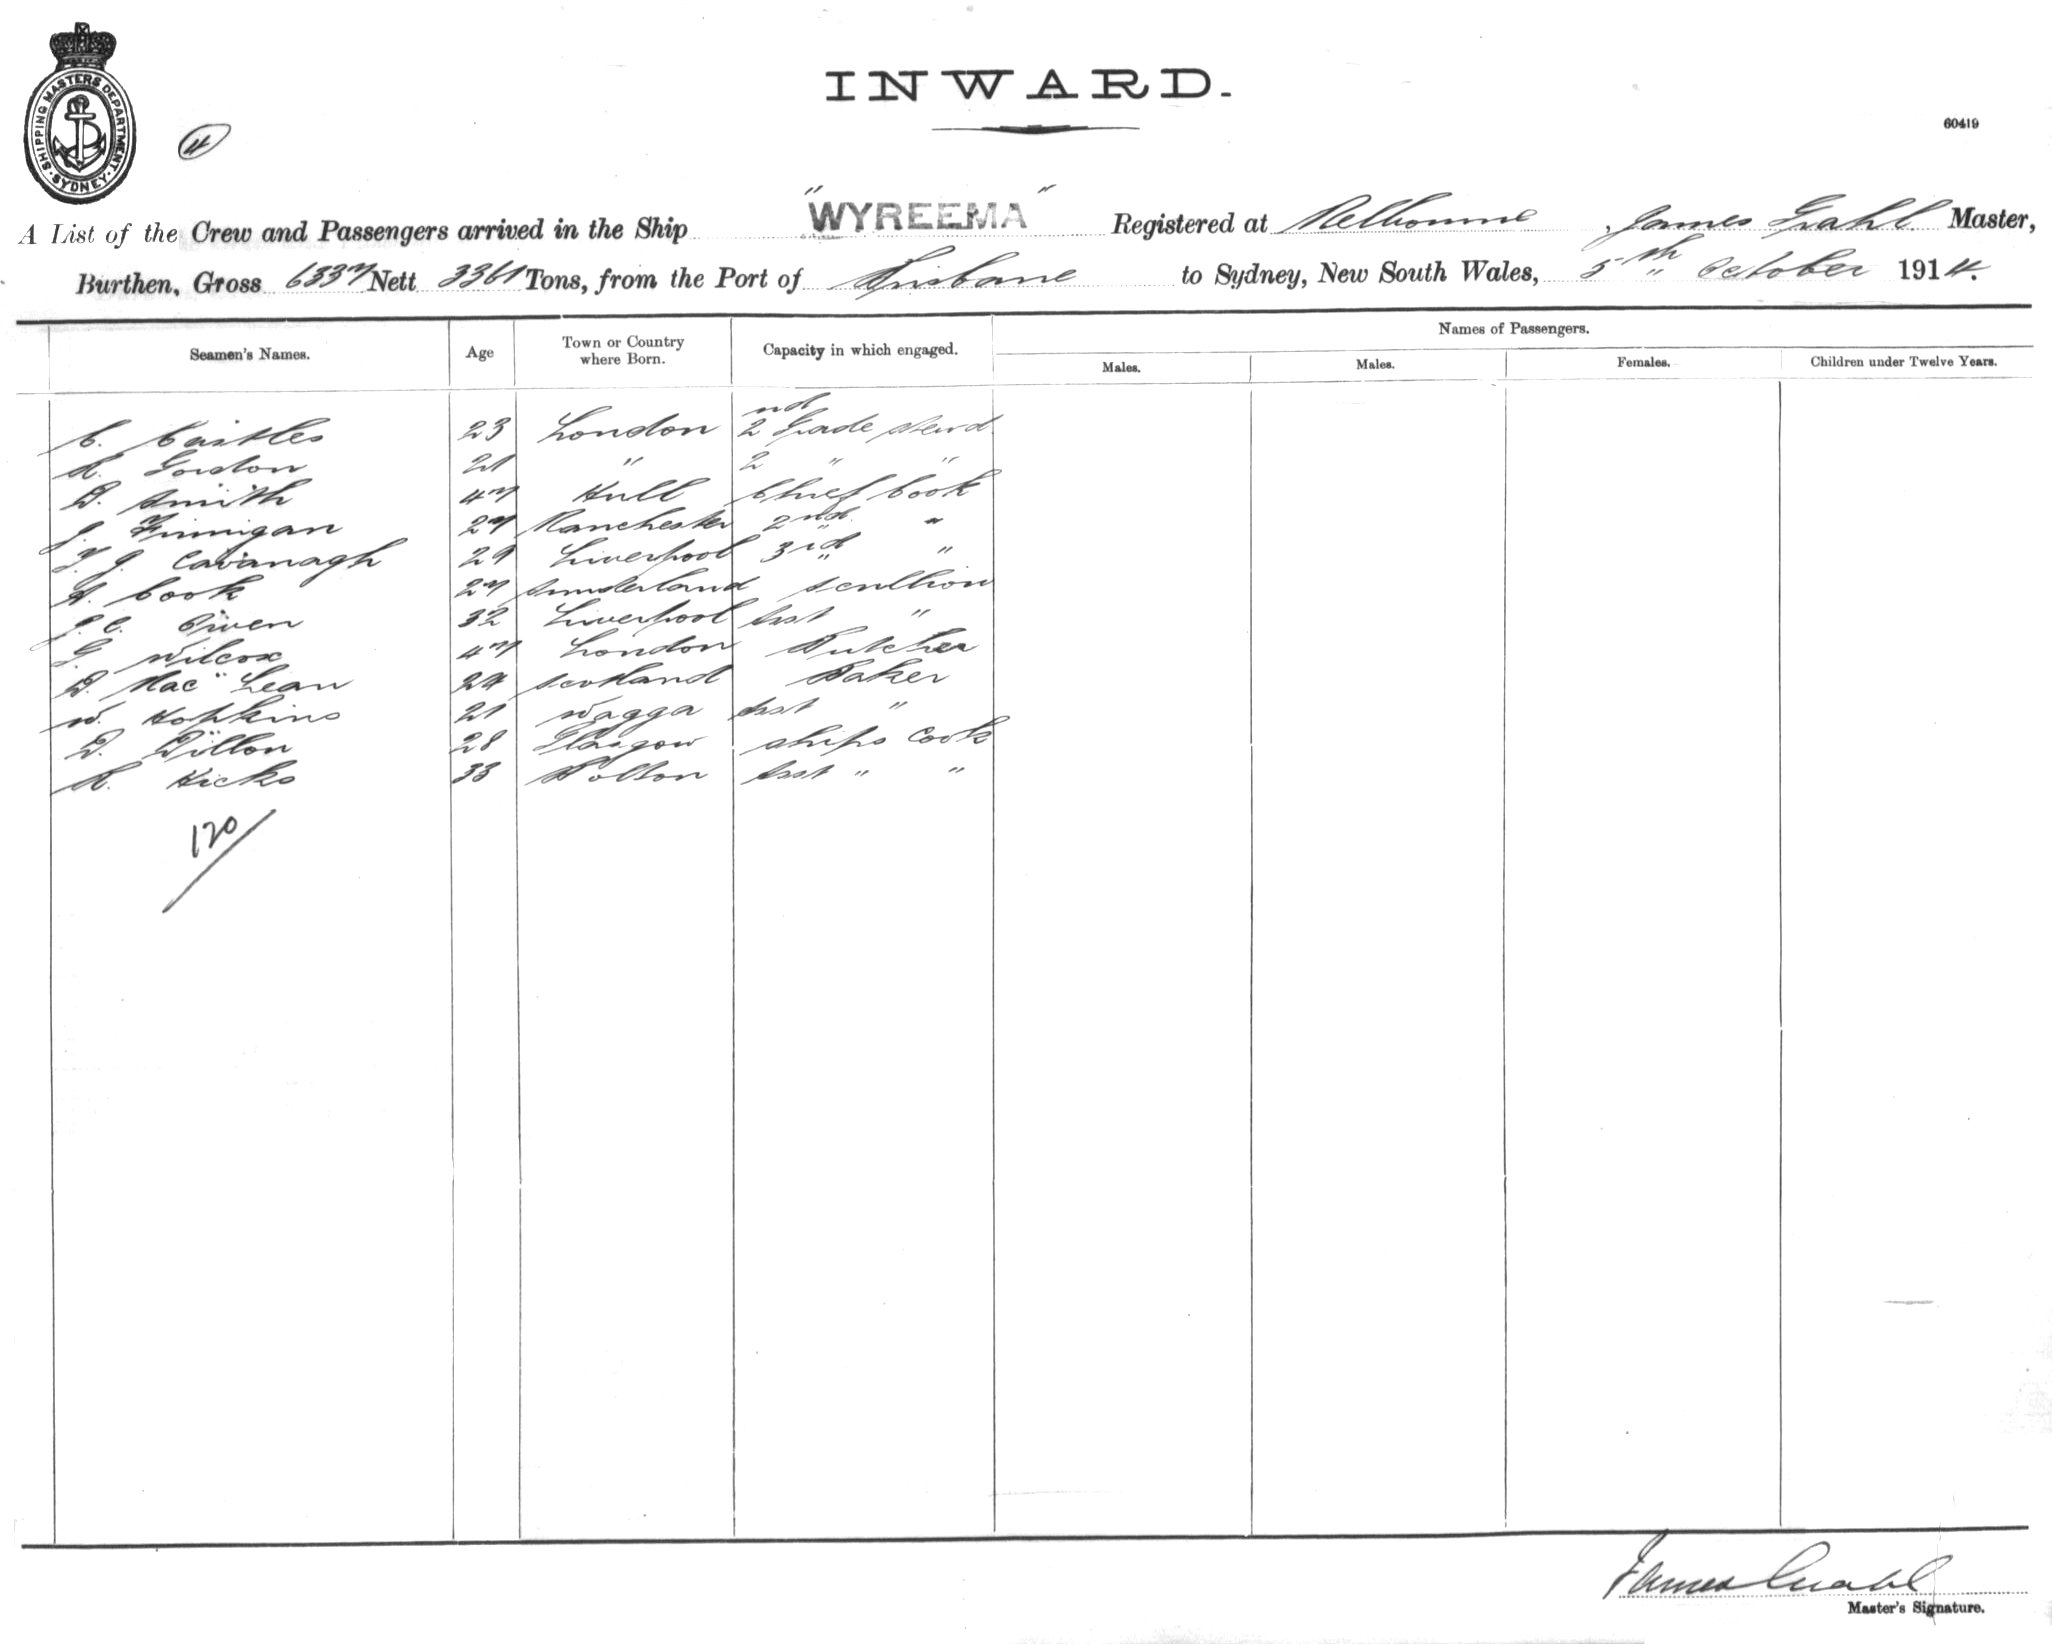 SHIPPING MASTERS DEPARTMENT. SYDNEY.
4
INWARD.
60419
A List of the Crew and Passengers arrived in the Ship "WYREEMA" Registered at Melbourne, James Grahl Master,
Burthen, Gross 6337 Nett 3361 Tons, from the Port of Brisbane to Sydney, New South Wales, 5th October 1914.
Names of Passengers.
Seamen's Names. Age Town or Country where Born. Capacity in which engaged. Males. Males. Females. Children under Twelve Years.
C. Castles 23 London 2nd Grade Stewd
R. Gordon 21 " 2 " "
D. Smith 47 Hull Chief Cook
J. Finnigan 27 Manchester 2nd "
T. J. Cavanagh 29 Liverpool 3rd "
A. Cook 27 Sunderland Scullion
J. C. Owen 32 Liverpool Asst "
G. Wilcox 47 London Butcher
D. Mac"Lean 24 Scotland Baker
W. Hopkins 21 Wagga Asst "
D. Dillon 28 Glasgow Ships Cook
R. Hicks 33 Bolton Asst " "
120
James Grahl
Master's Signature.